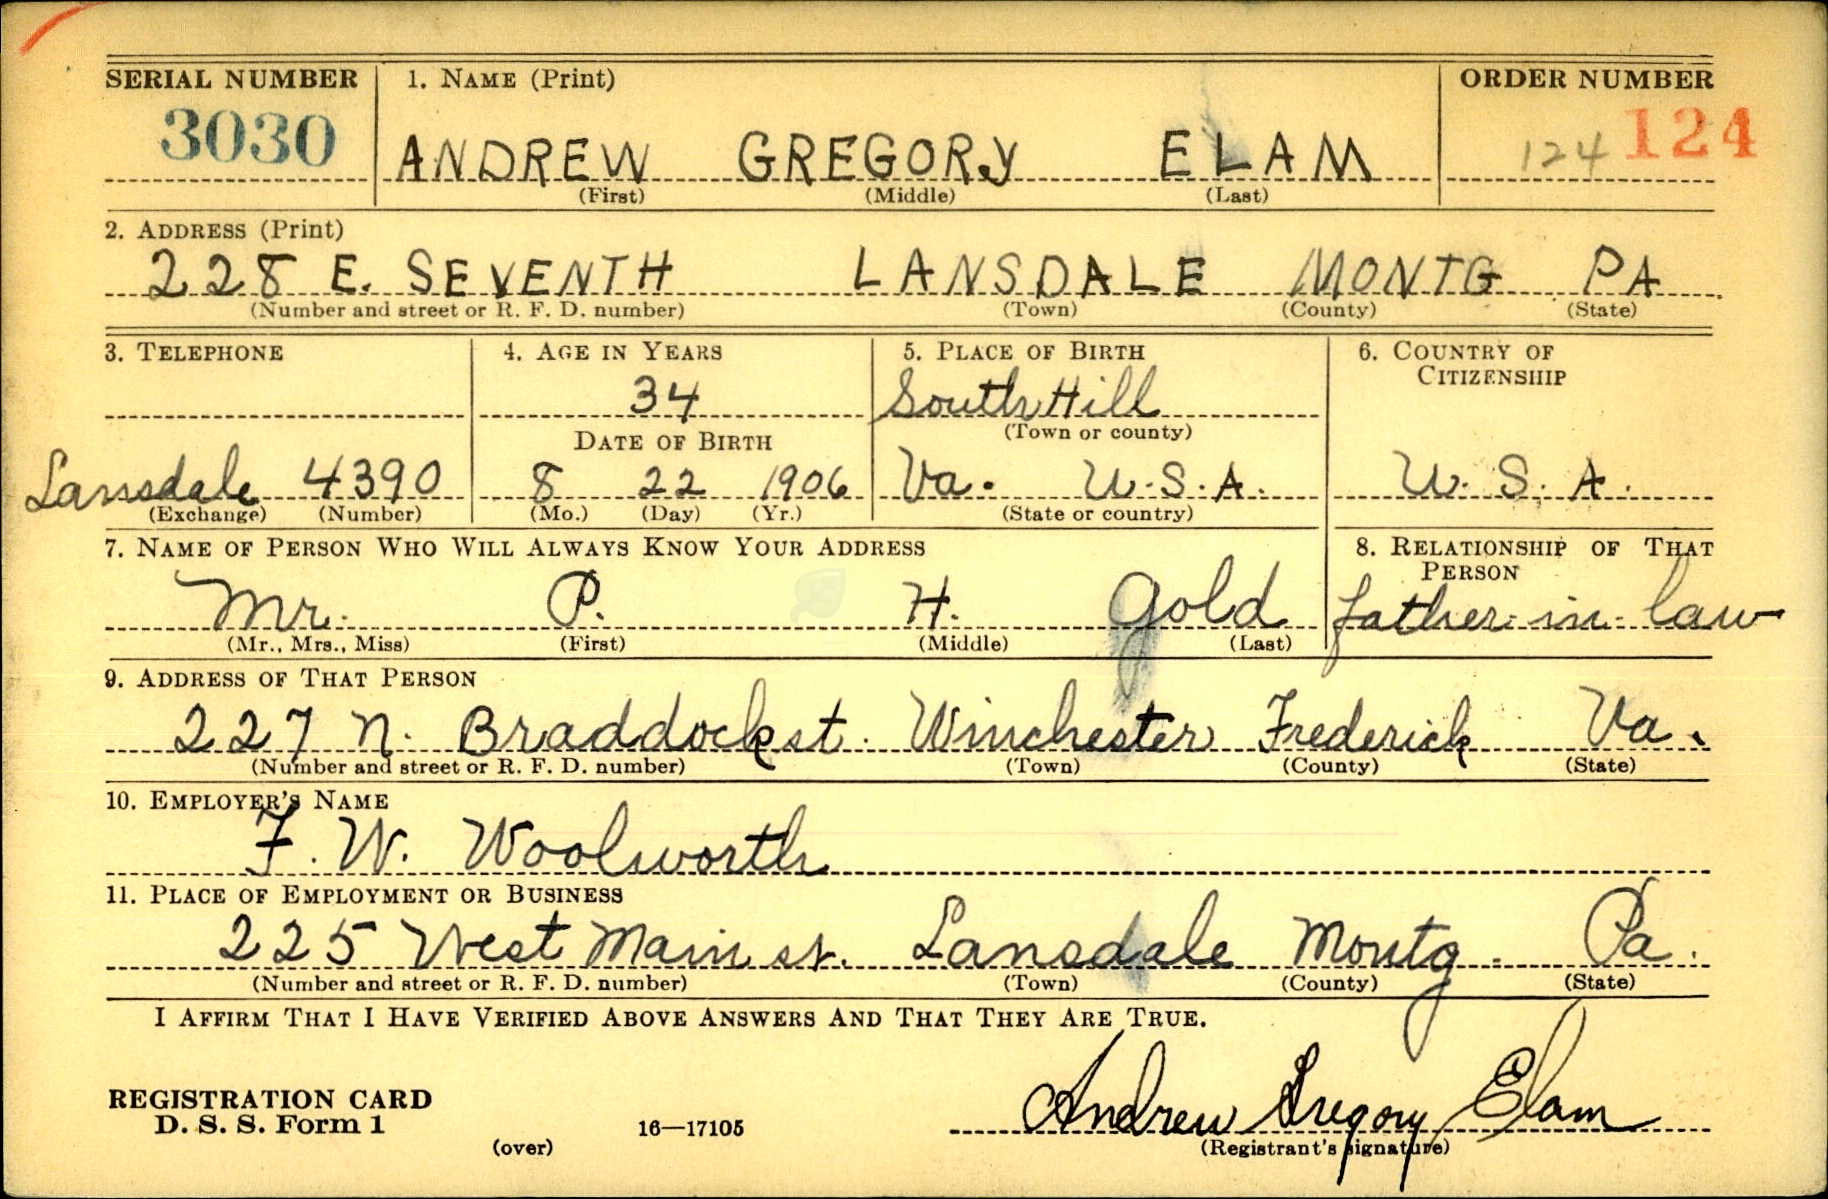 SERIAL NUMBER 1. NAME (Print) ORDER NUMBER
3030 ANDREW GREGORY ELAM 124 124
(First) (Middle) (Last)
2. ADDRESS (Print)
228 E. SEVENTH LANSDALE MONTG PA
(Number and street or R. F. D. number) (Town) (County) (State)
3. TELEPHONE 4. AGE IN YEARS 5. PLACE OF BIRTH 6. COUNTRY OF CITIZENSHIP
34 South Hill
DATE OF BIRTH (Town or county)
Lansdale 4390 8 22 1906 Va. U.S.A. U.S.A.
(Exchange) (Number) (Mo.) (Day) (Yr.) (State or country)
7. NAME OF PERSON WHO WILL ALWAYS KNOW YOUR ADDRESS 8. RELATIONSHIP OF THAT PERSON
Mr. P. H. Gold father-in-law
(Mr., Mrs., Miss) (First) (Middle) (Last)
9. ADDRESS OF THAT PERSON
227 N. Braddock st. Winchester Frederick Va.
(Number and street or R. F. D. number) (Town) (County) (State)
10. EMPLOYER'S NAME
F. W. Woolworth
11. PLACE OF EMPLOYMENT OR BUSINESS
225 West Main st. Lansdale Montg. Pa.
(Number and street or R. F. D. number) (Town) (County) (State)
I AFFIRM THAT I HAVE VERIFIED ABOVE ANSWERS AND THAT THEY ARE TRUE.
REGISTRATION CARD
D. S. S. Form 1 Andrew Gregory Elam
(over) 16—17105 (Registrant's signature)